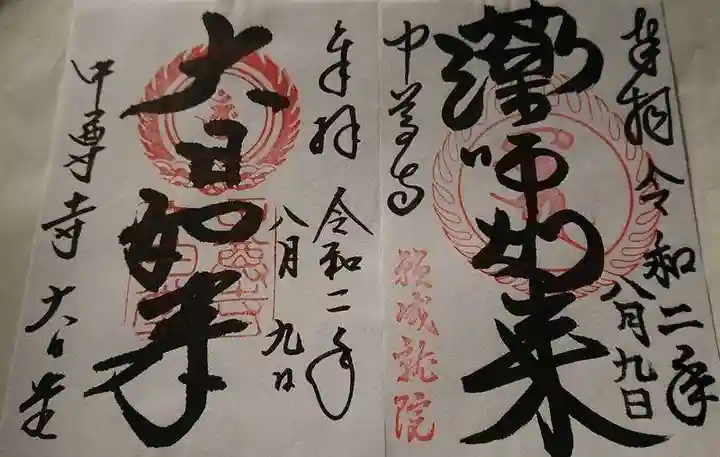 奉拝 令和二年
八月九日
薬師如来
中尊寺
願成就院
奉拝 令和二年
八月
九日
大日如来
中尊寺 大日堂